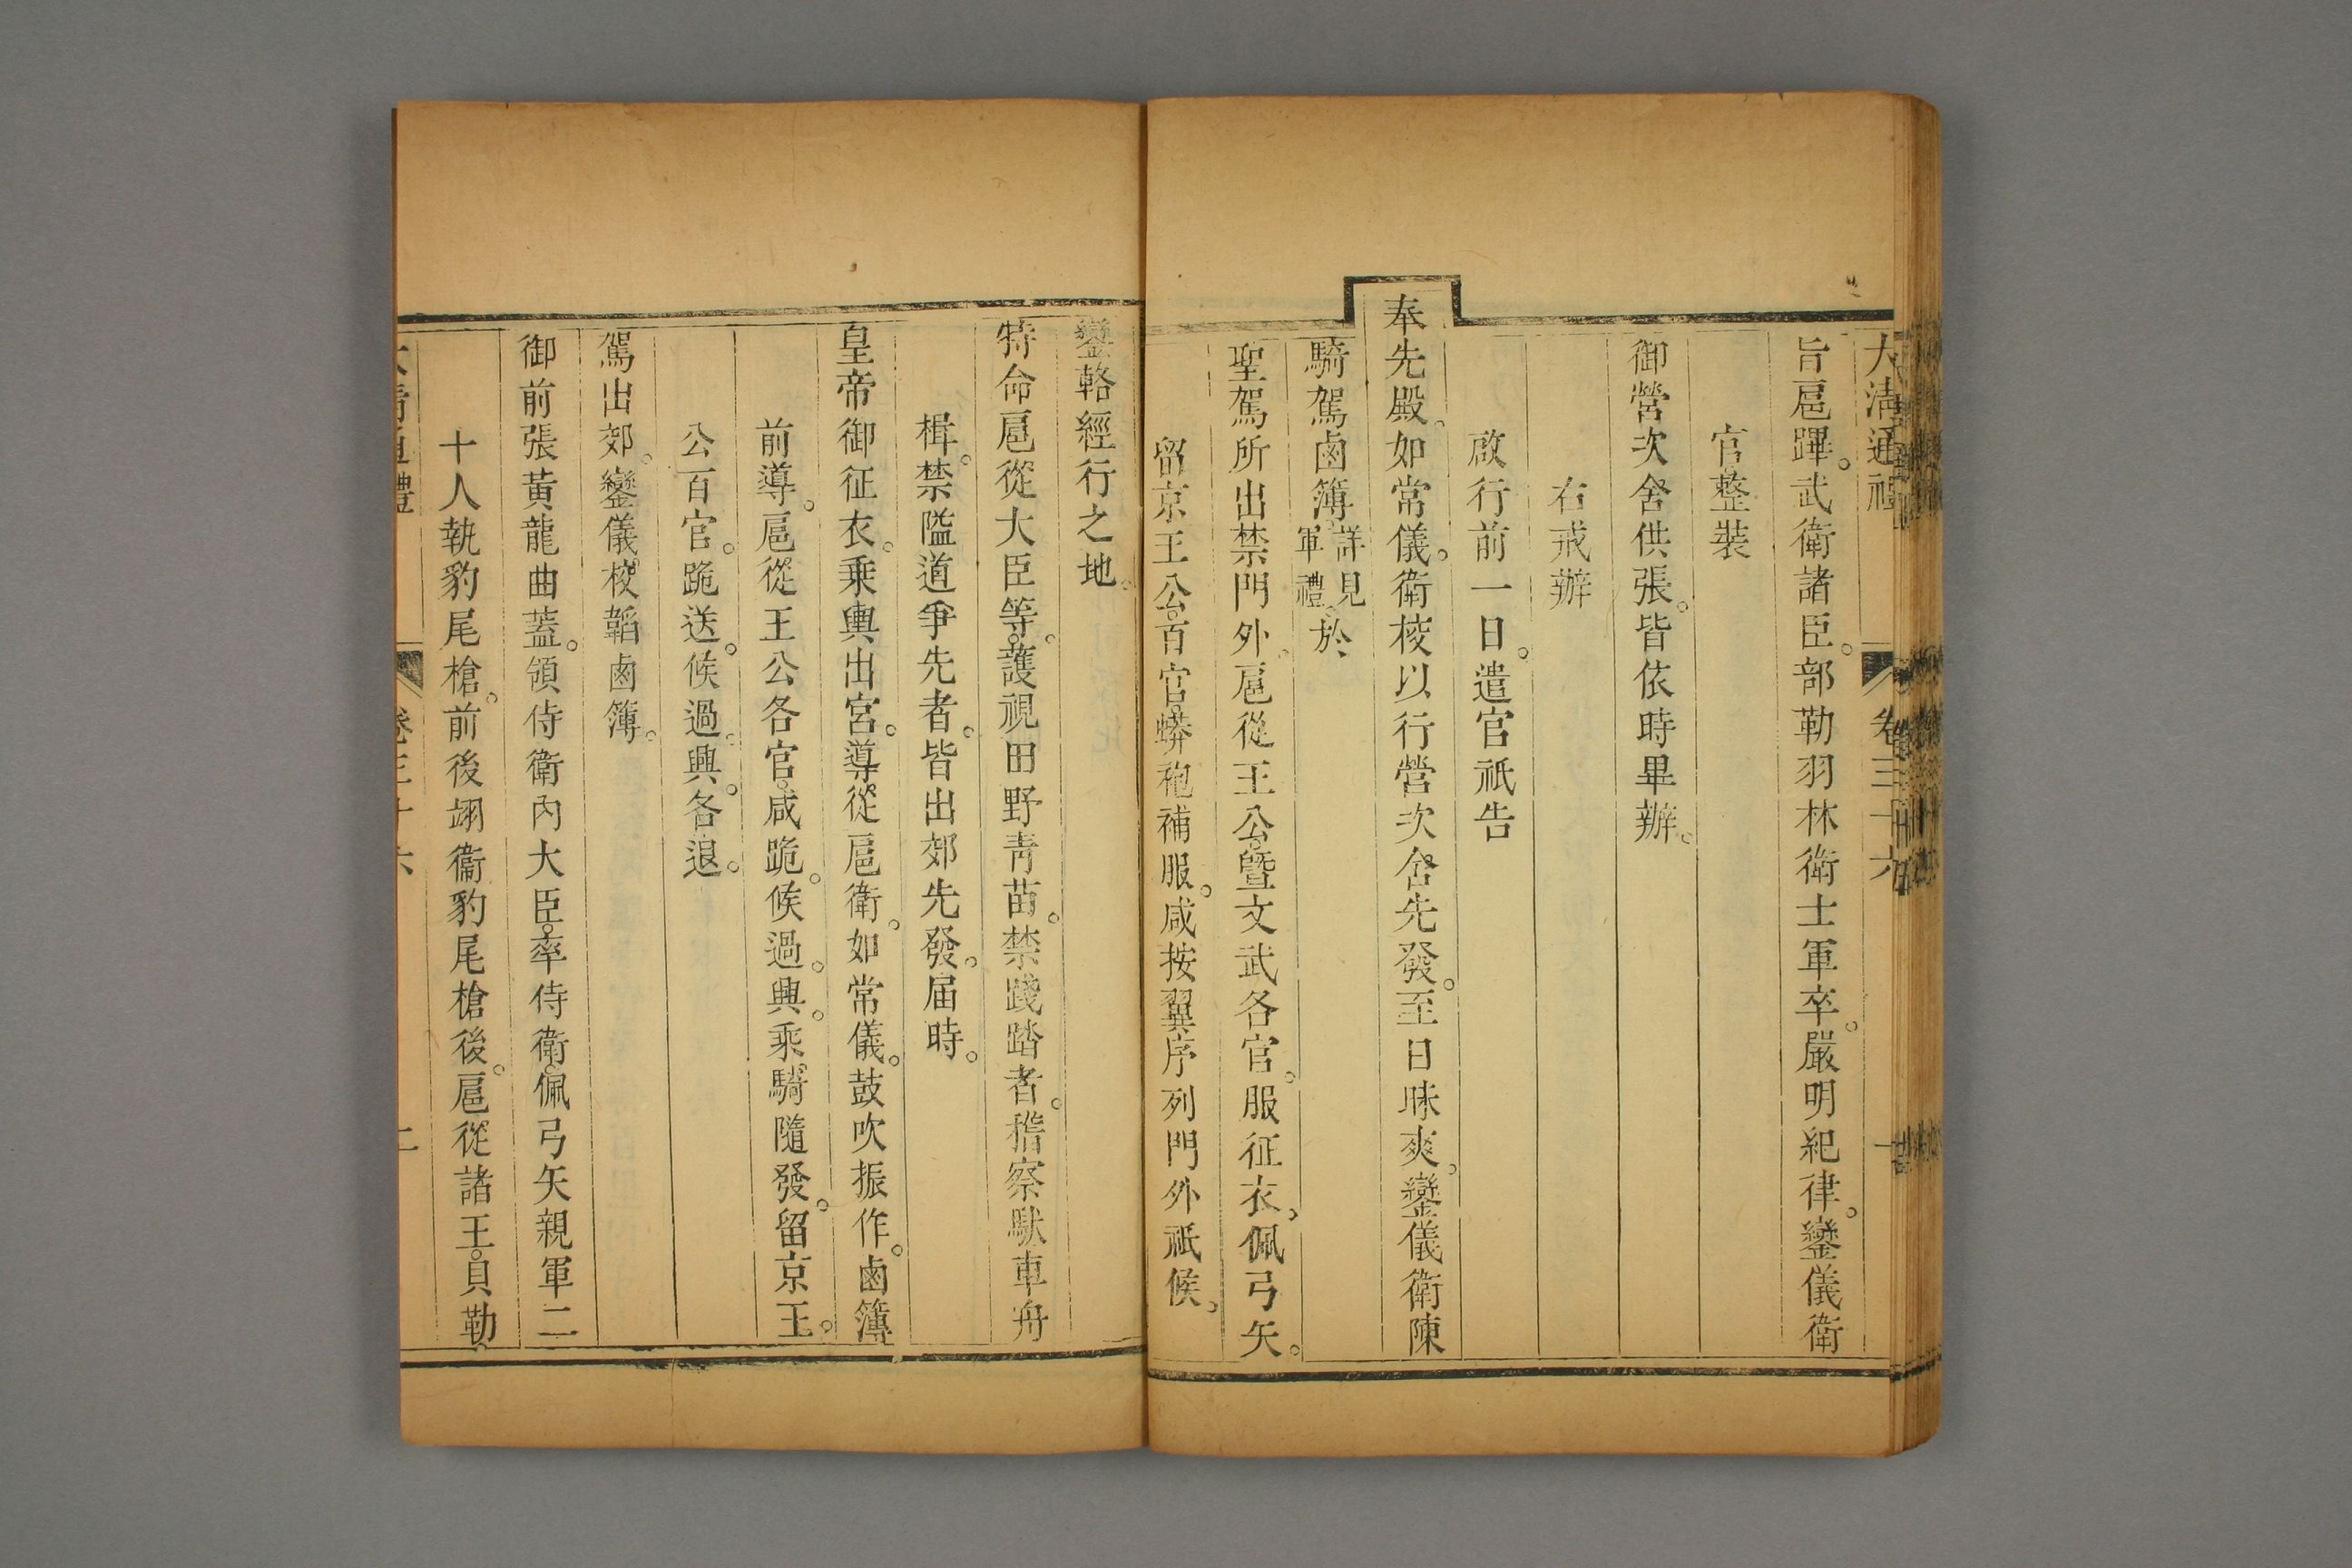 大清通禮 卷三十六
旨扈蹕。武衛諸臣。部勒羽林衛士軍卒。嚴明紀律。鑾儀衛
官。整裝
御營次舍供張。皆依時畢辦。
右戒辦
啟行前一日。遣官祇告
奉先殿。如常儀。衛校以行營次舍先發。至日昧爽。鑾儀衛陳
騎駕鹵簿。詳見軍禮。於
聖駕所出禁門外。扈從王公。暨文武各官。服征衣。佩弓矢。
留京王公。百官。蟒袍補服。咸按翼序列門外祇候。
鑾輅經行之地。
特命扈從大臣等。護視田野青苗。禁踐踏者。稽察馱車舟
楫。禁隘道爭先者。皆出郊先發。屆時。
皇帝御征衣。乘輿出宮。導從扈衛。如常儀。鼓吹振作。鹵簿
前導。扈從王公各官。咸跪。候過。興。乘騎隨發。留京王。
公百官。跪送。候過。興。各退。
駕出郊。鑾儀。校韜鹵簿。
御前張黃龍曲蓋。領侍衛內大臣。率侍衛。佩弓矢親軍二
十人執豹尾槍。前後翊衞豹尾槍後。扈從諸王。貝勒
大清通禮 卷三十六 二